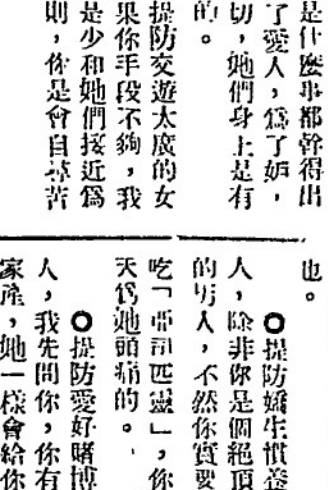 是什麼事都幹得出
了愛人，爲了妬，
切，她們身上是有
的。
提防交遊太廣的女
果你手段不夠，我
是少和她們接近爲
則，你是會自尋苦
也。
○提防嬌生慣養
人，除非你是個絕頂
的男人，不然你實要
吃「亞司匹靈」，你
天爲她頭痛的。
○提防愛好賭博
人，我先問你，你有
家產，她一樣會給你